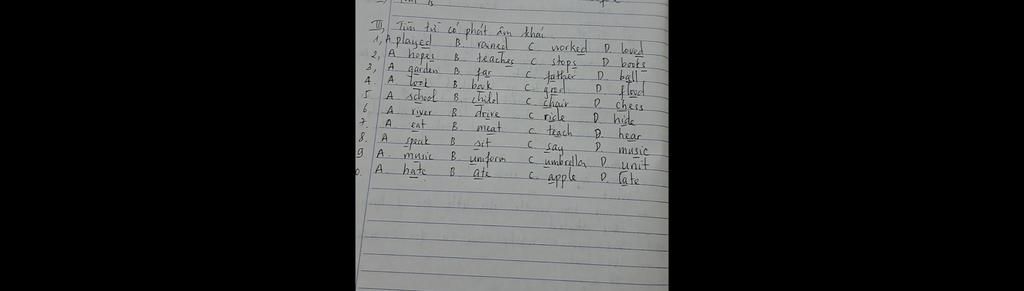 III, Tìm từ có phát âm khác.
1, A played B. rained C. worked D. loved
2, A hopes B. teaches C. stops D. books
3, A garden B. far C. father D. ball
4. A look B. book C. good D. flood
5. A school B. child C. chair D. chess
6. A river B. drive C. ride D. hide
7. A eat B. meat C. teach D. hear
8. A speak B. sit C. say D. music
9 A. music B. uniform C. umbrella D. unit
0. A. hate B. ate C. apple D. late